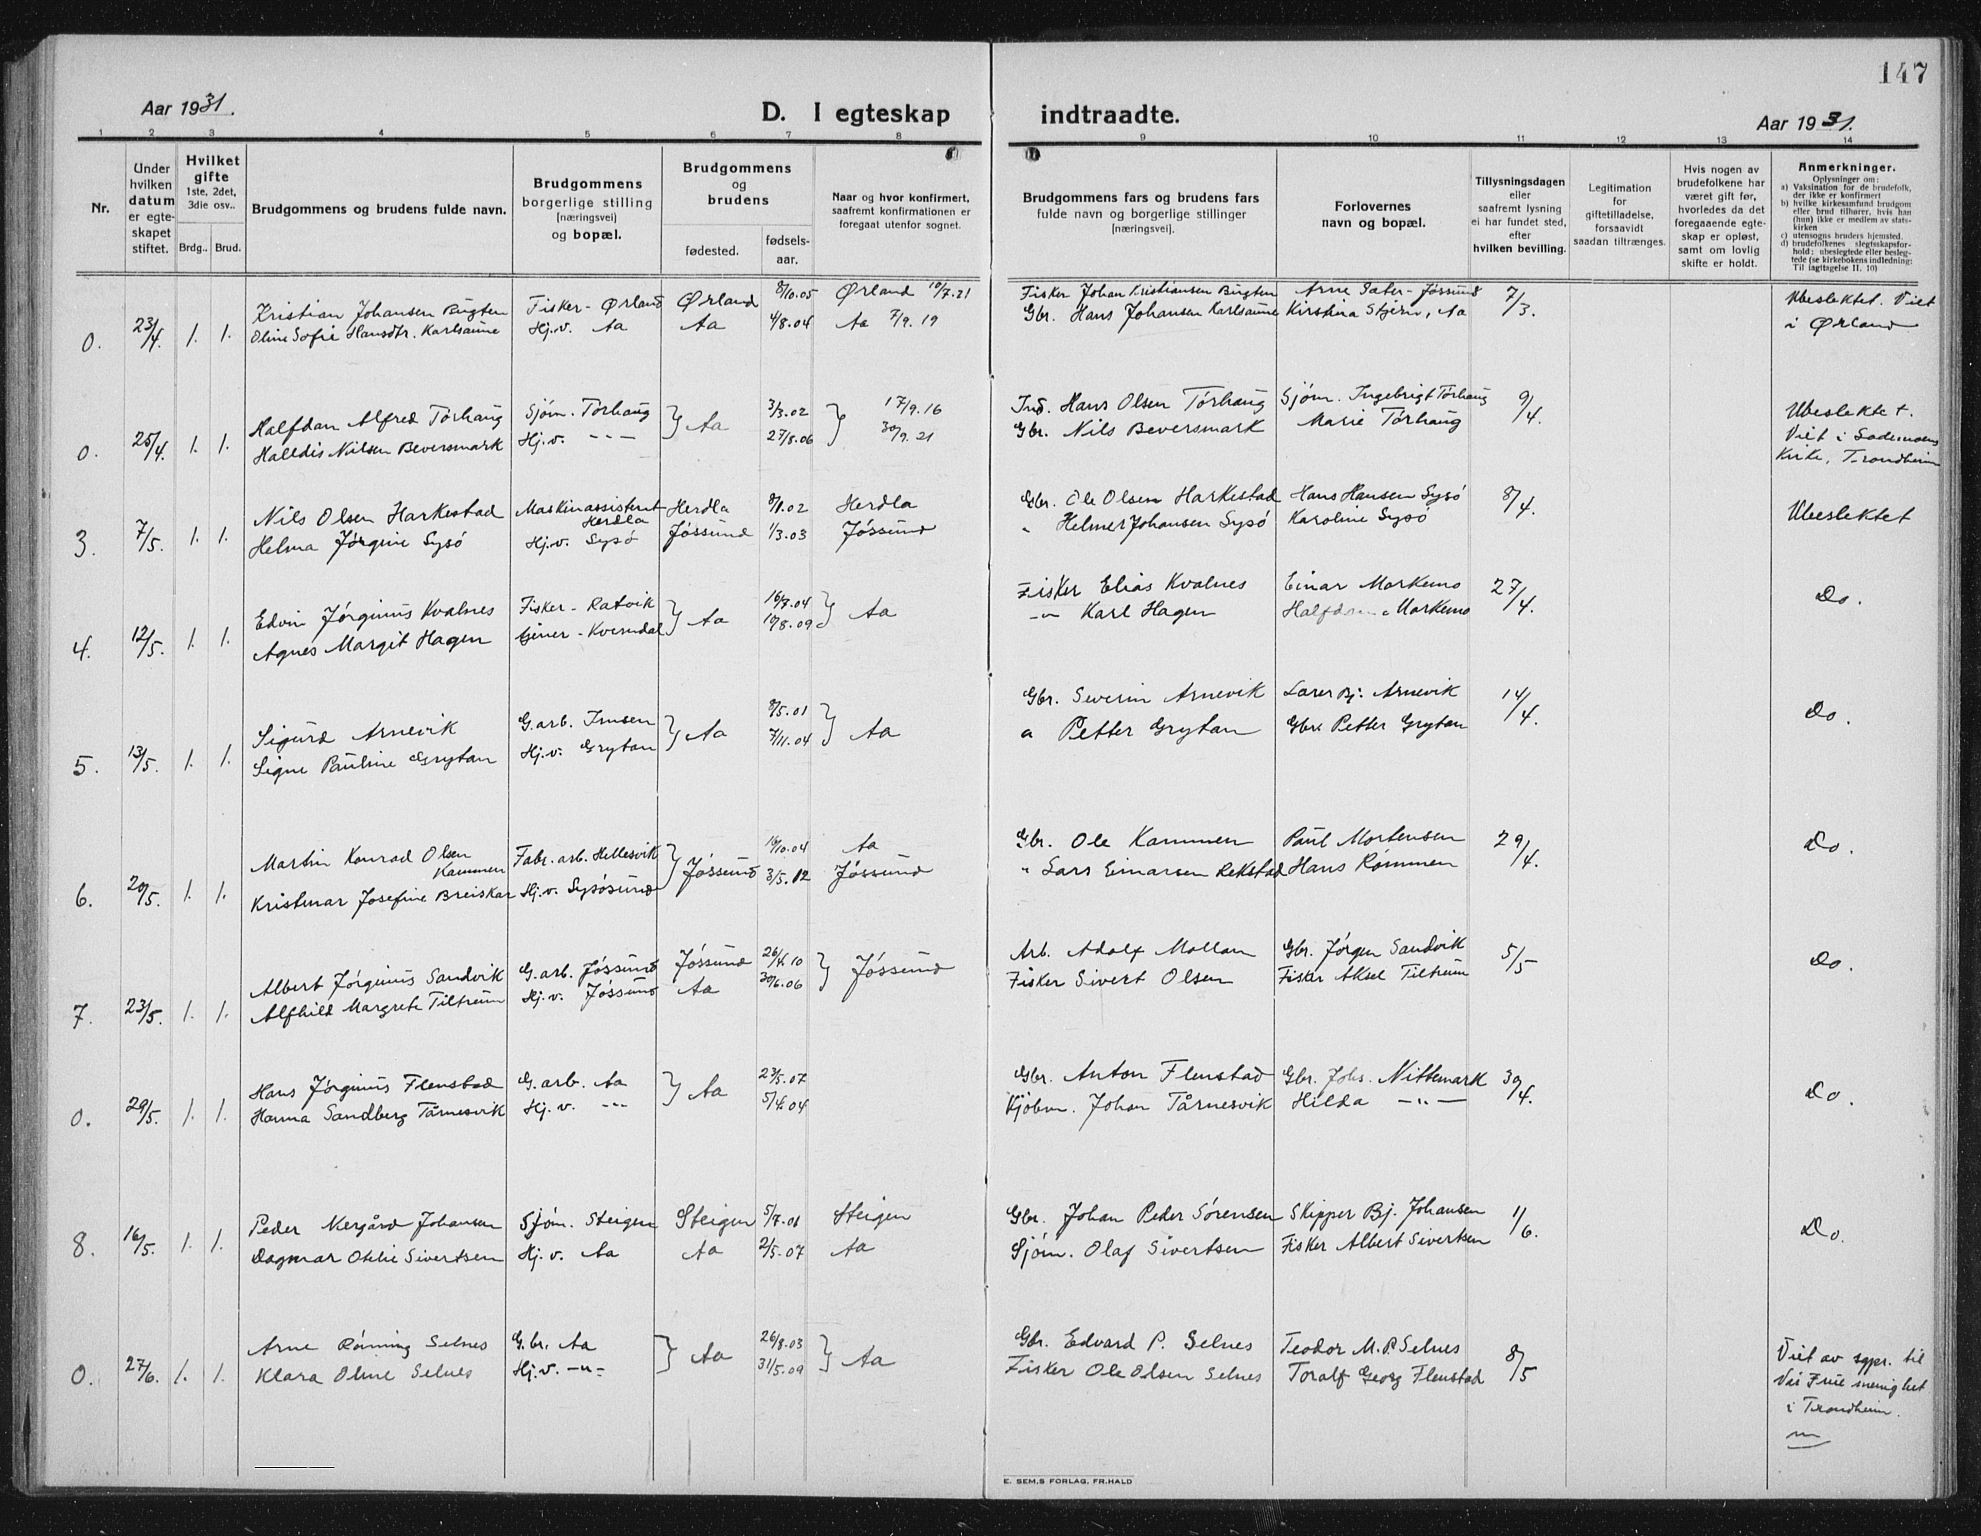 147
Aar 1931.
D. I egteskap indtraadte.
Aar 1931.
1 2 3 4 5 6 7 8 9 10 11 12 13 14
Nr.
Under hvilken datum er egteskapet stiftet.
Hvilket gifte
1ste, 2det, 3die osv..
Brdg.. Brud.
Brudgommens og brudens fulde navn.
Brudgommens borgerlige stilling (næringsvei) og bopæl.
Brudgommens og brudens
fødested.
fødselsaar.
Naar og hvor konfirmert, saafremt konfirmationen er foregaat utenfor sognet.
Brudgommens fars og brudens fars fulde navn og borgerlige stillinger (næringsvei).
Forlovernes navn og bopæl.
Tillysningsdagen eller saafremt lysning ei har fundet sted, efter hvilken bevilling.
Legitimation for giftetilladelse, forsaavidt saadan tiltrænges.
Hvis nogen av brudefolkene har været gift før, hvorledes da det foregaaende egteskap er opløst, samt om lovlig skifte er holdt.
Anmerkninger.
Oplysninger om:
a) Vaksination for de brudefolk, der ikke er konfirmert
b) hvilke kirkesamfund brudgom eller brud tilhører, hvis han (hun) ikke er medlem av statskirken
c) utensogns bruders hjemsted.
d) brudefolkenes slegtsskapsforhold: ubeslegtede eller beslegtede (se kirkebokens indledning: Til iagttagelse II. 10)
0. 23/4. 1. 1. Kristian Johansen Bugten Fisker - Ørland Ørland 8/10.05 Ørland 10/7.21 Fisker Johan Kristiansen Bugten Arne Sæter - Jøssund 7/3. Ubeslektet. Viet
Oline Sofie Hansdtr. Karlsaune Hj.v. Aa Aa 4/8.04 Aa 7/9.19 Gbr. Hans Johansen Karlsaune Kirstina Stjern, Aa i Ørland
0. 25/4. 1. 1. Halfdan Alfred Tørhaug Sjøm. Tørhaug Aa 3/3.02 17/9.16 Ind. Hans Olsen Tørhaug Sjøm. Ingebrigt Tørhaug 9/4. Ubeslektet.
Halldis Nilsen Beversmark Hj.v. - - - 27/8.06 30/9.21 Gbr. Nils Beversmark Marie Tørhaug Viet i
Kirke, Trondheim
3. 7/5. 1. 1. Nils Olsen Harkestad Maskinassistent Herdla Herdla 8/1.02 Herdla Gbr. Ole Olsen Harkestad Hans Hansen Sysø 8/4. Ubeslektet
Helma Jørgine Sysø Hj.v. Sysø Jøssund 1/3.03 Jøssund " Helmer Johansen Sysø Karoline Sysø
4. 12/5. 1. 1. Edvin Jørginus Kvalnes Fisker - Ratvik Aa 16/7.04 Aa Fisker Elias Kvalnes Einar Morkemo 27/4. Do.
Agnes Margit Hagen tjener - Kverndal 19/8.09 -"- Karl Hagen Halfdan Morkemo
5. 13/5. 1. 1. Sigurd Arnevik G.arb. Imsen Aa 8/5.01 Aa Gbr. Severin Arnevik Lærer Bj. Arnevik 14/4. Do.
Signe Pauline Grytan Hj.v. Grytan 7/11.04 " Petter Grytan Gbr. Petter Grytan
6. 20/5. 1. 1. Martin Konrad Olsen Kammen Fabr.arb. Hellesvik Jøssund 19/10.04 Aa Gbr. Ole Kammen Paul Mortensen 29/4. Do.
Kristmar Josefine Breiskar Hj.v. Sysøsund 3/5.12 Jøssund " Lars Einarsen Rekstad Hans Rømmen
7. 23/5. 1. 1. Albert Jørginus Sandvik G.arb. Jøssund Jøssund 26/4.10 Jøssund Arb. Adolf Mollan Gbr. Jørgen Sandvik 5/5 Do.
Alfhild Margrete Tiltrum Hj.v. Jøssund Aa 30/6.06 Fisker Sivert Olsen Fisker Aksel Tiltrum
0. 29/5. 1. 1. Hans Jørginus Flenstad G.arb. Aa Aa 23/5.07 Gbr. Anton Flenstad Gbr. Johs. Nittemark 30/4. Do.
Hanna Sandberg Tårnesvik Hj.v. - - - 5/4.04 Kjøbm. Johan Tårnesvik Hilda - " -
8. 16/5. 1. 1. Peder Nergård Johansen Sjøm. Steigen Steigen 5/7.01 Steigen Gbr. Johan Peder Sørensen Skipper Bj. Johansen 1/6. Do.
Dagmar Otelie Sivertsen Hj.v. Aa Aa 2/5.07 Aa Sjøm. Olaf Sivertsen Fisker Albert Sivertsen
0. 27/6. 1. 1. Arne Rønning Selnes G.br. Aa Aa 26/8.03 Aa Gbr. Edvard P. Selnes Teodor M.P. Selnes 8/5 Viet av sgpr. til
Klara Oline Selnes Hj.v. -"- 31/5.09 Fisker Ole Olsen Selnes Toralf Georg Flenstad Vår Frue menighet
i Trondheim.
E. SEM,S FORLAG, FR.HALD